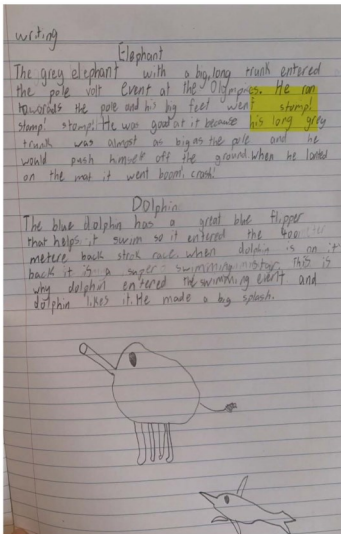 writing
Elephant
The grey elephant with a big, long trunk entered
the pole volt event at the Olympics. He ran
towards the pole and his big feet went stomp!
stomp! stomp! He was good at it because his long grey
trunk was almost as big as the pole and he
would push himself off the ground. When he landed
on the mat it went boom, crash!
Dolphin
The blue dolphin has a great blue flipper
that helps it swim so it entered the 400
metere back strok race. when dolphin is on it
back it is a super swimming star. This is
why dolphin entered the swimming event and
dolphin likes it. He made a big splash.